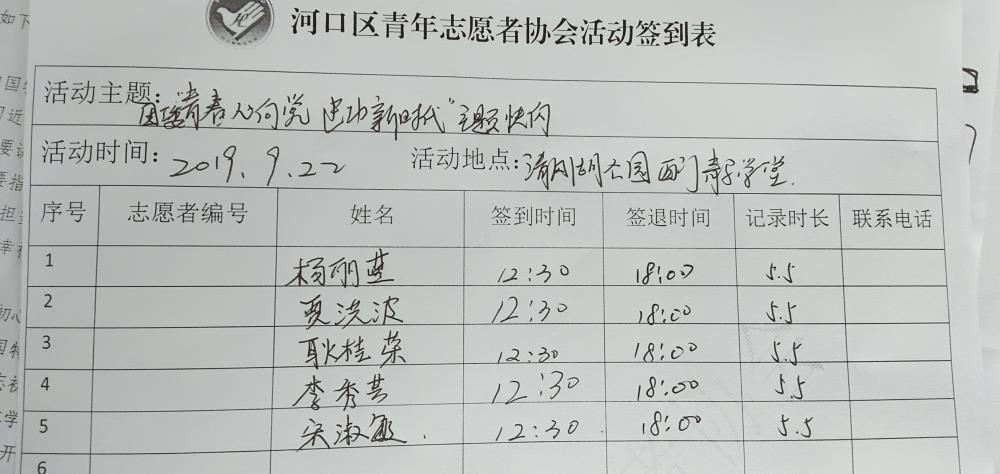 河口区青年志愿者协会活动签到表
活动主题:团委"青春心向党 建功新时代"主题快闪
活动时间:2019.9.22 活动地点:清风湖公园西门孝学堂.
序号 志愿者编号 姓名 签到时间 签退时间 记录时长 联系电话
1 杨丽蓝 12:30 18:00 5.5
2 夏洪波 12:30 18:00 5.5
3 耿桂荣 12:30 18:00 5.5
4 李秀芸 12:30 18:00 5.5
5 宋淑敏. 12:30 18:00 5.5
6